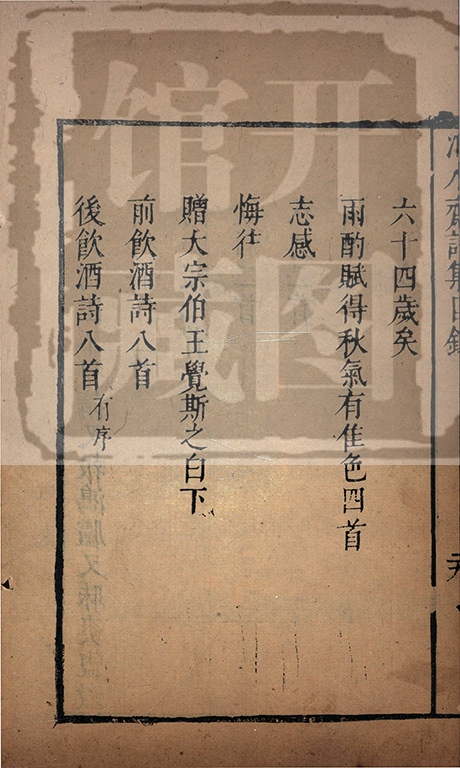 六十四歲矣
雨酌賦得秋氣有隹色四首
志感
悔往
贈大宗伯王覺斯之白下
前飲酒詩八首
後飲酒詩八首 有序
开
图
馆
藏